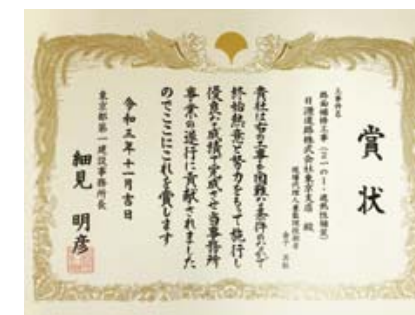 賞状
工事件名
路面補修工事（２１の１・遮熱性舗装）
日進道路株式会社東京支店 殿
現場代理人兼監理技術者
貴社は右の工事を困難な条件のもとで
終始熱意と努力をもって施行し
優良な成績で完成させ当事務所
事業の遂行に貢献されました
のでここにこれを賞します
令和三年十一月吉日
東京都第一建設事務所長
細見 明彦